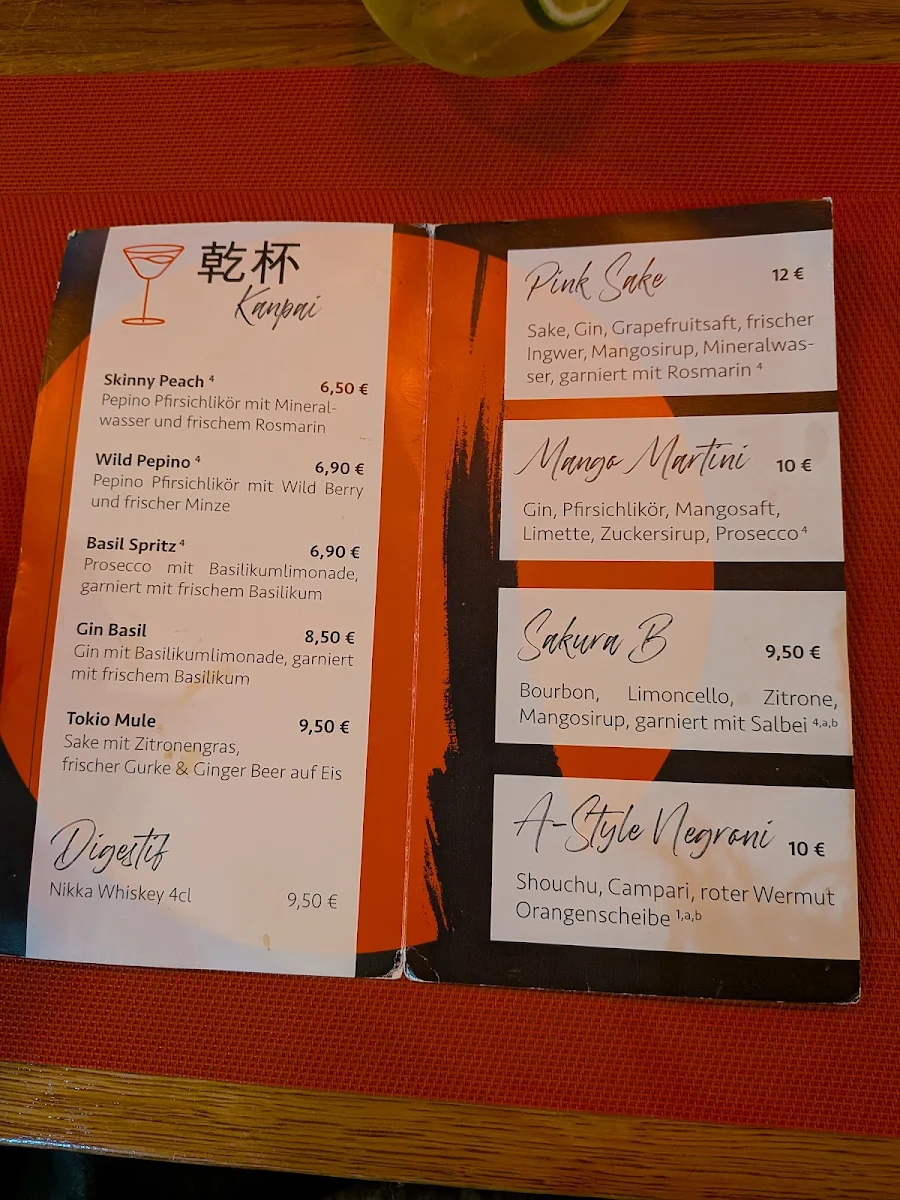 乾杯
Kanpai
Skinny Peach ⁴ 6,50 €
Pepino Pfirsichlikör mit Mineral-
wasser und frischem Rosmarin
Wild Pepino ⁴ 6,90 €
Pepino Pfirsichlikör mit Wild Berry
und frischer Minze
Basil Spritz ⁴ 6,90 €
Prosecco mit Basilikumlimonade,
garniert mit frischem Basilikum
Gin Basil 8,50 €
Gin mit Basilikumlimonade, garniert
mit frischem Basilikum
Tokio Mule 9,50 €
Sake mit Zitronengras,
frischer Gurke & Ginger Beer auf Eis
Digestif
Nikka Whiskey 4cl 9,50 €
Pink Sake 12 €
Sake, Gin, Grapefruitsaft, frischer
Ingwer, Mangosirup, Mineralwas-
ser, garniert mit Rosmarin ⁴
Mango Martini 10 €
Gin, Pfirsichlikör, Mangosaft,
Limette, Zuckersirup, Prosecco ⁴
Sakura B 9,50 €
Bourbon, Limoncello, Zitrone,
Mangosirup, garniert mit Salbei ⁴,ᵃ,ᵇ
A-Style Negroni 10 €
Shouchu, Campari, roter Wermut
Orangenscheibe ¹,ᵃ,ᵇ